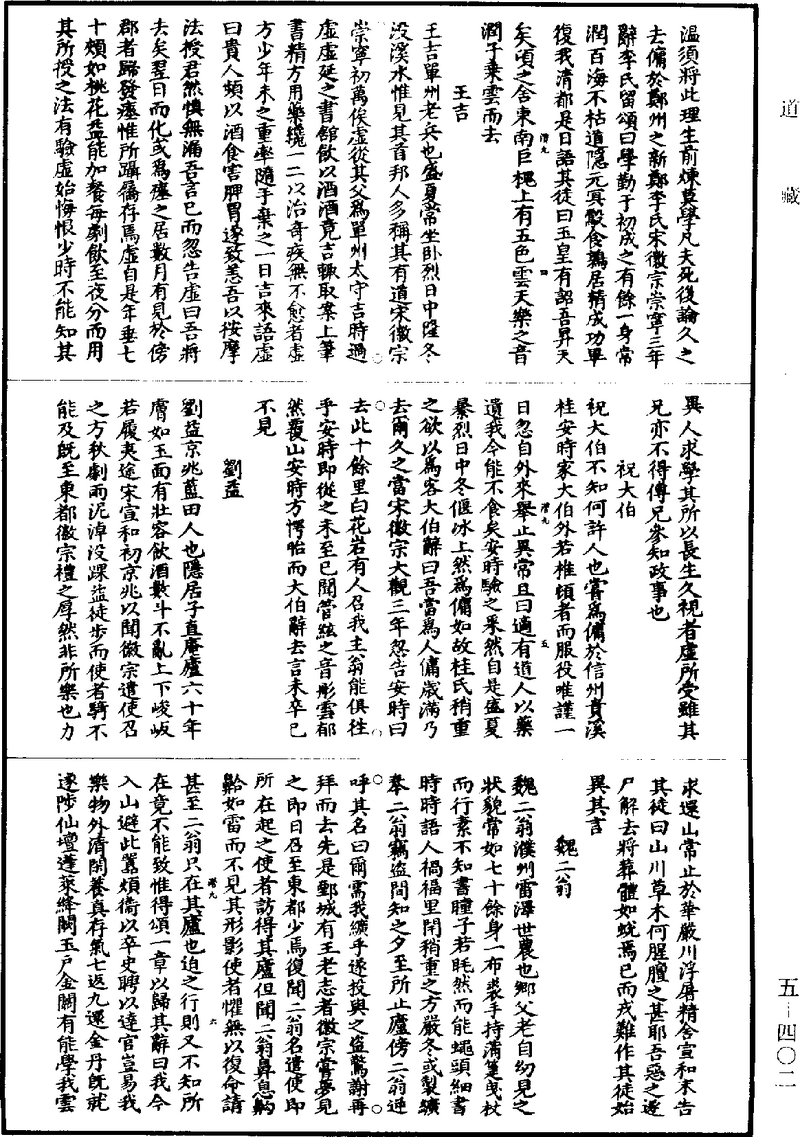 道藏
五—四〇二
溫須將此理生前煉莫學凡夫死後論久之
去傭於鄭州之新鄭李氏宋徽宗崇寧三年
辭李氏留頌曰學勤于初成之有餘一身常
潤百海不枯道隱元㝠鷇食鶉居精成功畢
復我清都是日語其徒曰玉皇有詔吾昇天
矣頃之舍東南巨槐上有五色雲天樂之音
潛九 四
潤子乗雲而去
王吉
王吉單州老兵也盛夏常坐卧烈日中隆冬
没溪水惟見其首邦人多稱其有道宋徽宗
崇寧初萬俟虚從其父爲單州太守吉時過
虚虚延之書館飲以酒酒竟吉輙取案上筆
書精方用藥纔一二以治奇疾無不愈者虚
方少年未之重率隨手棄之一日吉來語虚
曰貴人類以酒食害脾胃遂致恙吾以按摩
法授君然慎無漏吾言已而忽告虚曰吾將
去矣翌日而化或爲瘞之居數月有見於傍
郡者歸發瘞惟所躡屩存焉虚自是年垂七
十頰如桃花益能加餐每劇飲至夜分而用
其所授之法有驗虚始悔恨少時不能知其
異人求學其所以長生久視者虚所受雖其
兄亦不得傳兄叅知政事也
祝大伯
祝大伯不知何許人也嘗爲傭於信州貴溪
桂安時家大伯外若椎頓者而服役唯謹一
日忽自外來舉止異常且曰適有道人以藥
潛九 五
遺我今能不食矣安時驗之果然自是盛夏
暴烈日中冬偃冰上然爲傭如故桂氏稍重
之欲以爲客大伯辭曰吾當爲人傭歳滿乃
去爾久之當宋徽宗大觀三年忽告安時曰
去此十餘里白花岩有人召我主翁能俱徃
乎安時即從之未至已聞管絃之音彤雲郁
然覆山安時方愕眙而大伯辭去言未卒已
不見
劉益
劉益京兆藍田人也隱居子直庵廬六十年
膚如玉面有壯容飲酒數斗不亂上下峻岅
若履夷途宋宣和初京兆以聞徽宗遣使召
之方秋劇雨泥淖没踝益徒步而使者騎不
能及旣至東都徽宗禮之厚然非所樂也力
求還山常止於華嚴川浮屠精舍宣和末告
其徒曰山川草木何腥膻之甚耶吾惡之遂
尸解去將葬體如蛻焉已而戎難作其徒始
異其言
魏二翁
魏二翁濮州雷澤世農也鄉父老自幼見之
狀貌常如七十餘身一布裘手持蒲箑曳杖
而行素不知書瞳子若眊然而能蠅頭細書
時時語人禍福里閈稍重之方嚴冬或製纊
奉二翁竊盜聞知之夕至所止廬傍二翁迎
呼其名曰爾需我纊乎遂投與之盜驚謝再
拜而去先是鄄城有王老志者徽宗嘗夢見
之即日召至東都少焉復聞二翁名遣使即
所在起之使者訪得其廬但聞二翁鼻息齁
齁如雷而不見其形影使者懼無以復命請
潛九 六
甚至二翁只在其廬也迫之行則又不知所
在竟不能致惟得頌一章以歸其辭曰我今
入山避此嚚煩衞以卒史聘以達官豈易我
樂物外清閑養真存氣七返九還金丹旣就
遂陟仙壇蓬萊絳闕玉戸金關有能學我雲